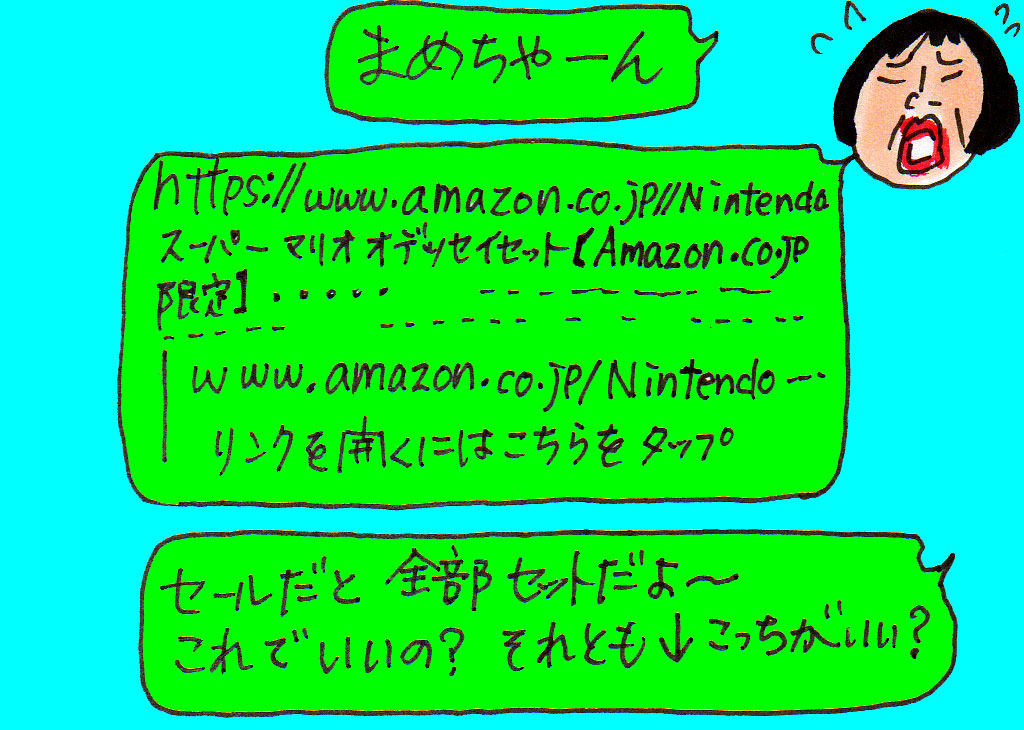 まめちゃーん
https://www.amazon.co.jp//Nintendo
スーパー マリオ オデッセイセット【Amazon.co.jp
限定】・・・・・
www.amazon.co.jp/Nintendo…
リンクを開くにはこちらをタップ
セールだと 全部セットだよ〜
これでいいの? それとも↓こっちがいい?